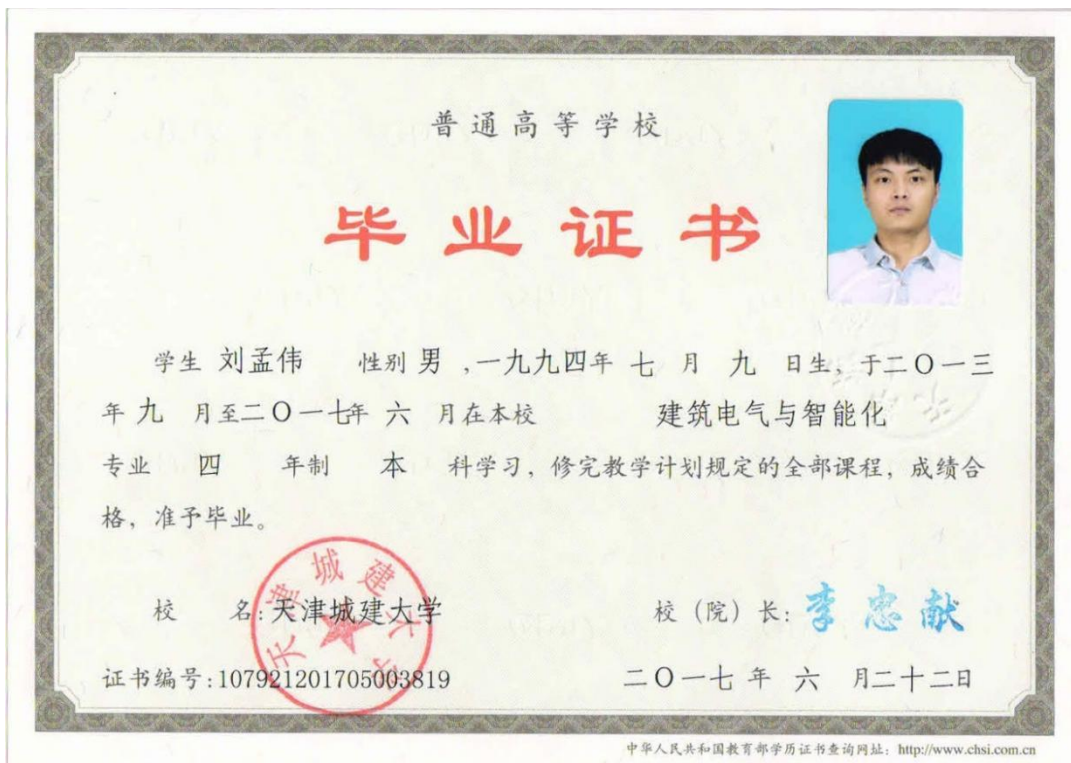 普通高等学校
毕业证书
学生 刘孟伟 性别 男 ,一九九四年 七 月 九 日生, 于二〇一三
年 九 月至二〇一七年 六 月在本校 建筑电气与智能化
专业 四 年制 本 科学习, 修完教学计划规定的全部课程, 成绩合
格, 准予毕业。
天津城建大学
校 名: 天津城建大学
校（院）长: 李忠献
证书编号: 107921201705003819
二〇一七 年 六 月二十二日
中华人民共和国教育部学历证书查询网址: http://www.chsi.com.cn